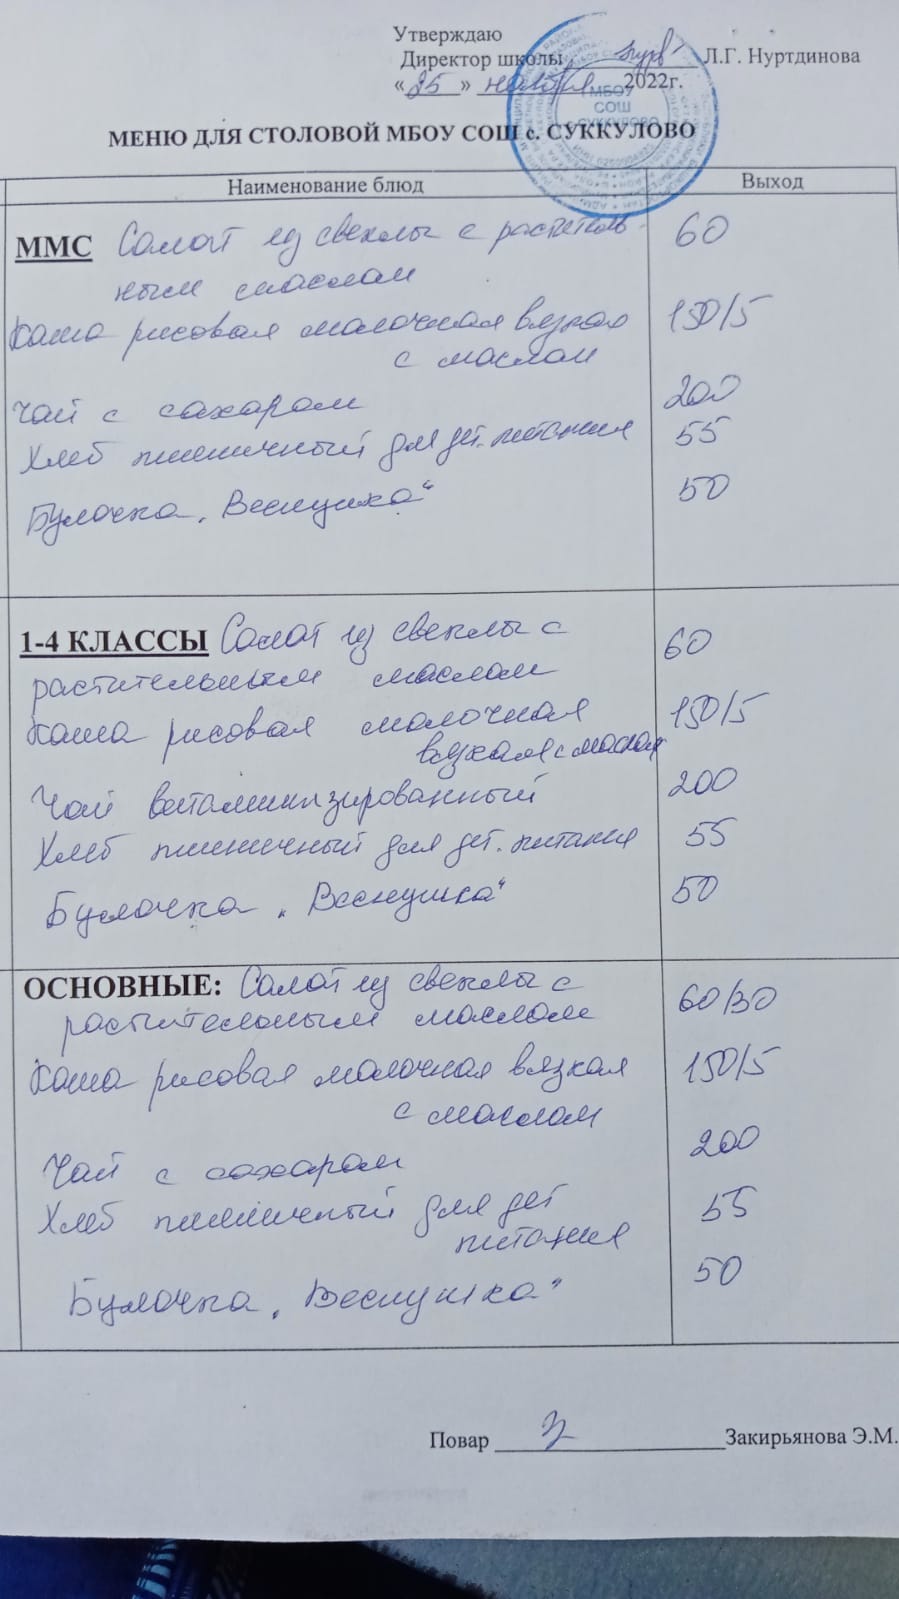 Утверждаю
Директор школы Л.Г. Нуртдинова
«25» ноября 2022г.
МБОУ
СОШ
с. СУККУЛОВО
МЕНЮ ДЛЯ СТОЛОВОЙ МБОУ СОШ с. СУККУЛОВО
Наименование блюд Выход
ММС Салат из свеклы с раститель- 60
ным маслом
Каша рисовая молочная вязкая 150/5
с маслом
Чай с сахаром 200
Хлеб пшеничный для дет. питания 55
Булочка „Веснушка“ 50
1-4 КЛАССЫ Салат из свеклы с 60
растительным маслом
Каша рисовая молочная 150/5
вязкая с маслом
Чай витаминизированный 200
Хлеб пшеничный для дет. питания 55
Булочка „Веснушка“ 50
ОСНОВНЫЕ: Салат из свеклы с 60/30
растительным маслом
Каша рисовая молочная вязкая 150/5
с маслом
Чай с сахаром 200
Хлеб пшеничный для дет 55
питания
Булочка „Веснушка“ 50
Повар Закирьянова Э.М.